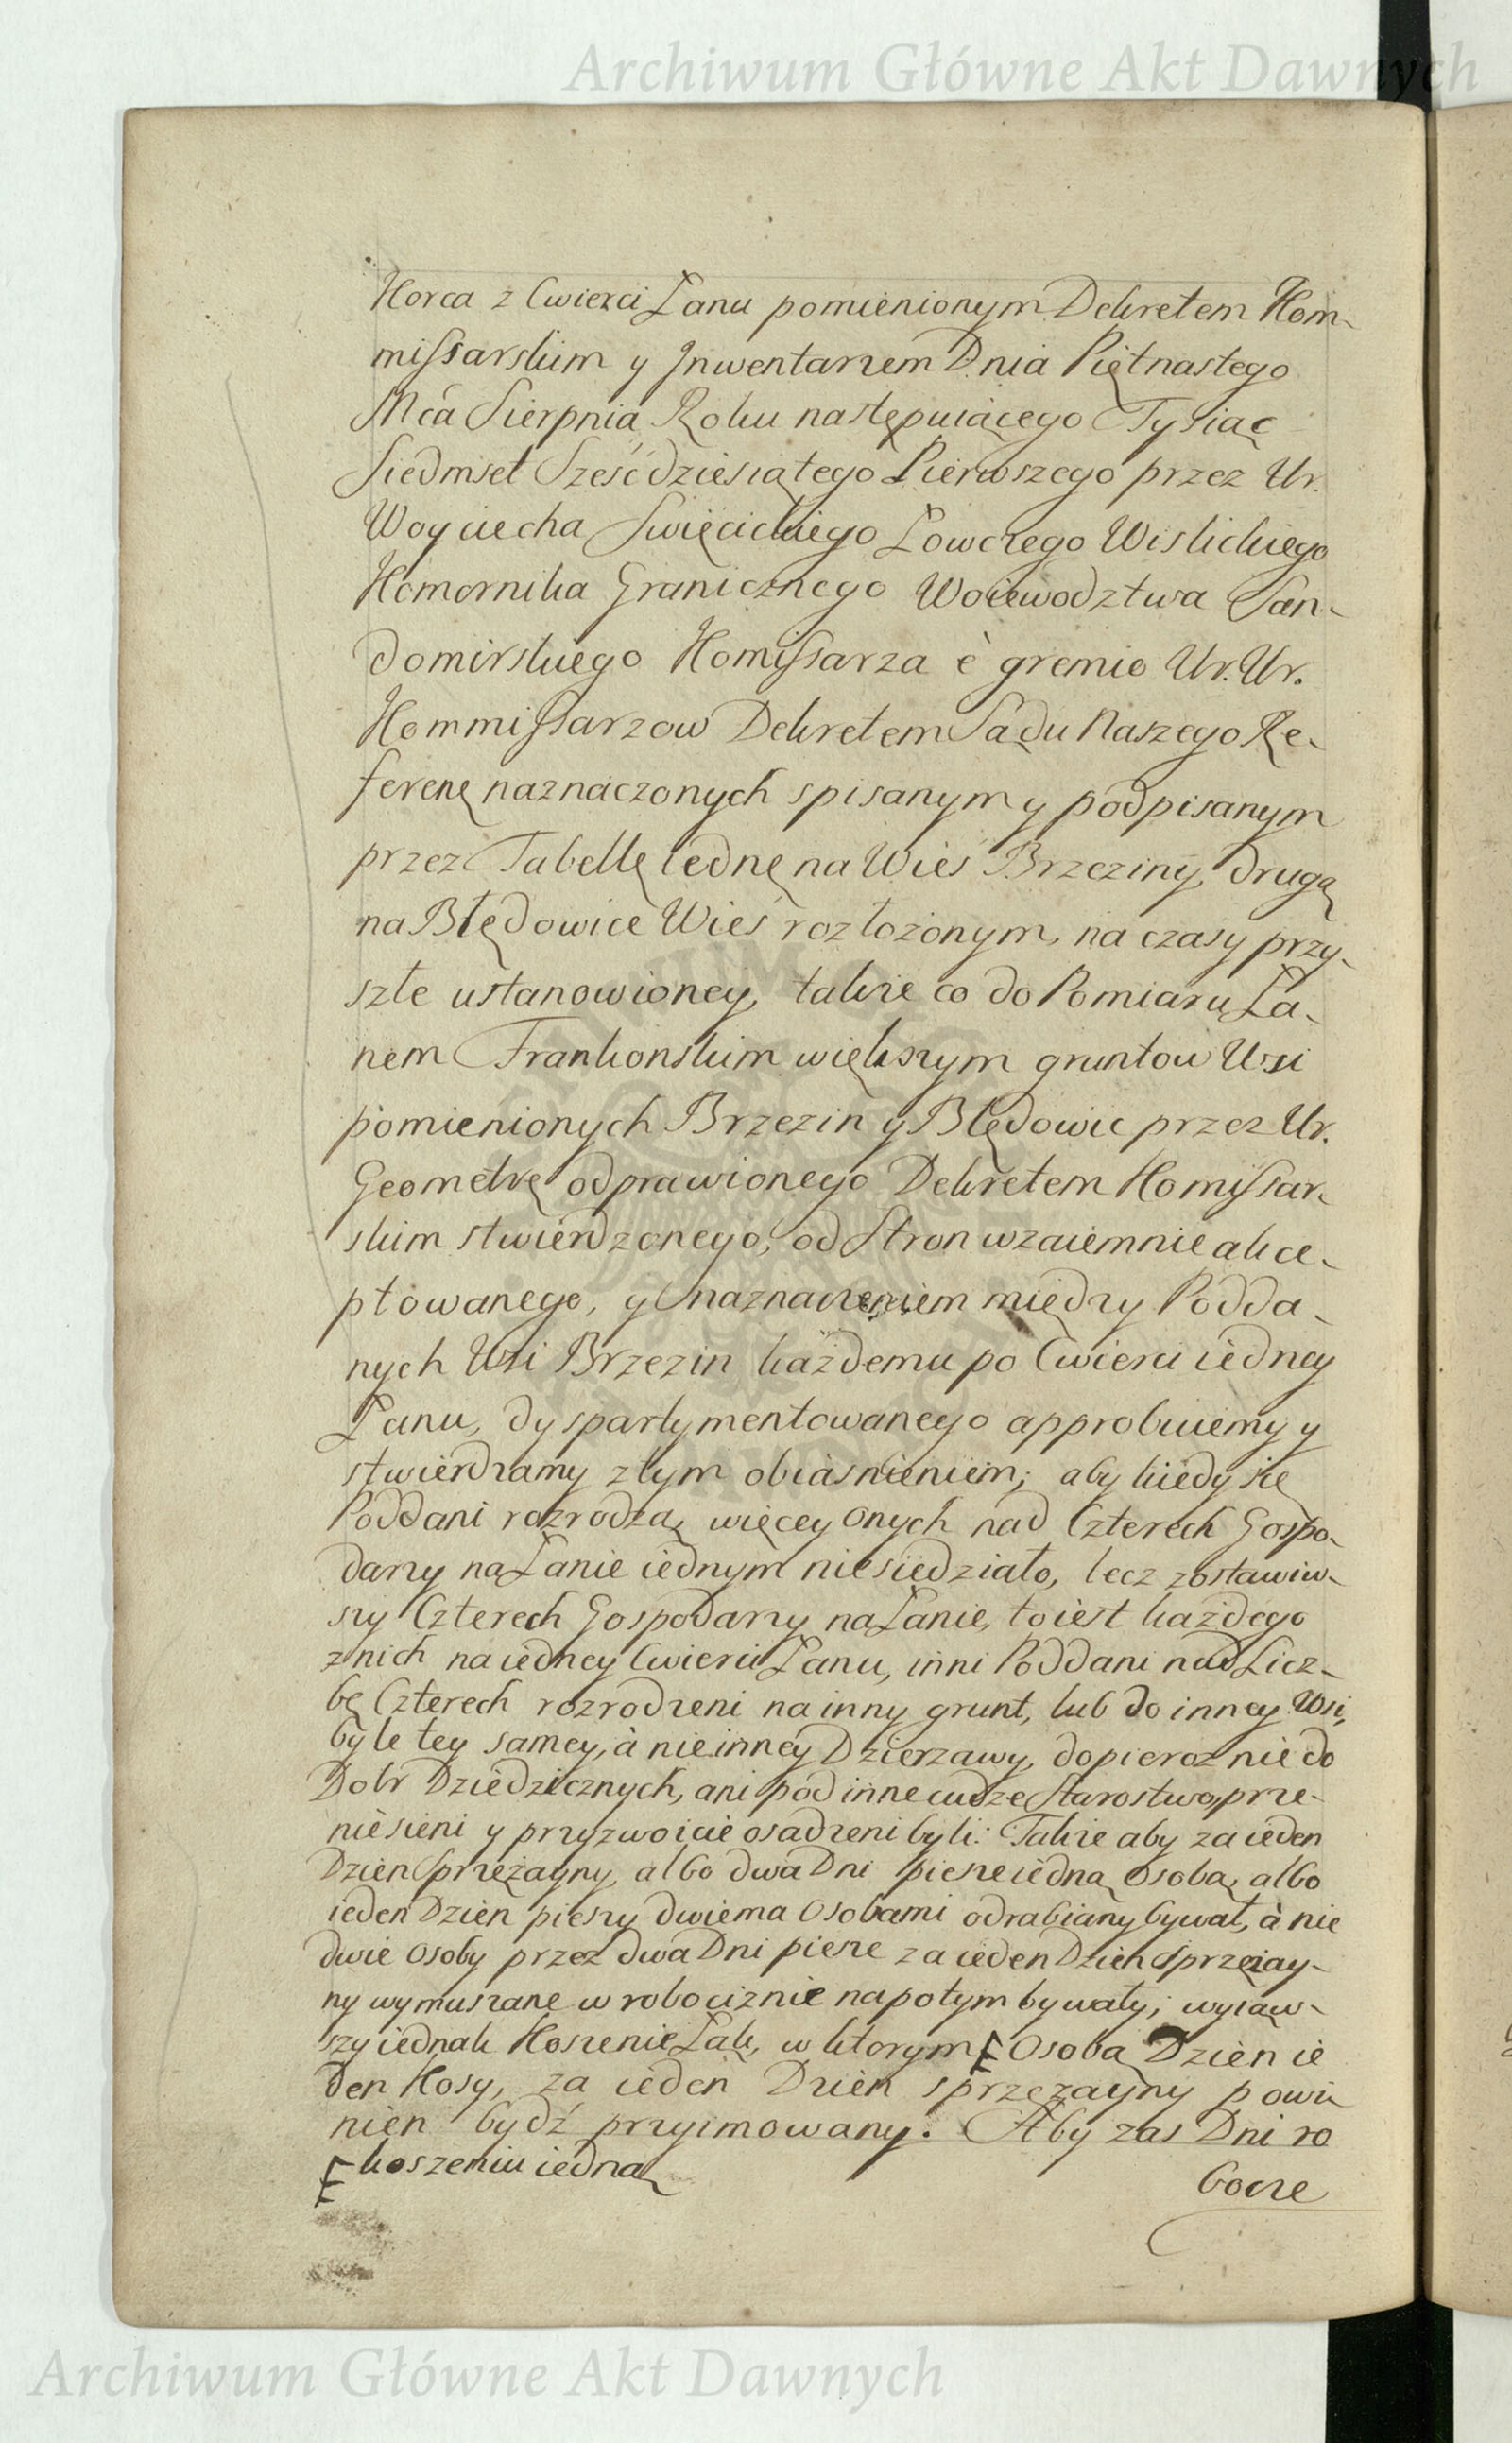 Archiwum Główne Akt Dawnych
Korca z Cwierci Łanu pomienionym Dekretem Kom-
missarskim y Inwentarzem Dnia Piętnastego
Mca Sierpnia Roku następuiącego Tysiąc
Siedmset Sześćdziesiątego Pierwszego przez Ur.
Woyciecha Swięcickiego Łowczego Wislickiego
Komornika Granicznego Woiewodztwa San-
domirskiego Komissarza è gremio Ur. Ur.
Kommissarzow Dekretem Sądu Naszego Re-
feren naznaczonych spisanym y podpisanym
przez Tabellę iednę na Wieś Brzeziny, drugą
na Błędowice Wieś rozłożonym, na czasy przy-
szłe ustanowioney, takze co do Pomiaru Ła-
nem Frankonskim większym gruntow Wsi
pomienionych Brzezin y Błędowic przez Ur.
Geometrę odprawionego Dekretem Komissar-
skim stwierdzonego, od Stron wzaiemnie akce-
ptowanego, y naznaczeniem między Podda-
nych Wsi Brzezin każdemu po Cwierci iedney
Łanu, dyspartymentowanego approbuiemy y
stwierdzamy z tym obiasnieniem; aby kiedy się
Poddani rozrodzą, więcey onych nad Czterech Gospo-
darzy na Łanie iednym niesiedziało, lecz zostawiw-
szy Czterech Gospodarzy na Łanie, to iest każdego
z nich na iedney Cwierci Łanu, inni Poddani nad Licz-
bę Czterech rozrodzeni na inny grunt, lub do inney Wsi,
byle tey samey, à nie inney Dzierzawy, dopieroz nie do
Dobr Dziedzicznych, ani pod inne cudze Starostwo, prze-
niesieni y przyzwoicie osadzeni byli: Takze aby za ieden
Dzien Sprzężayny, albo dwa Dni piesze iedną Osobą, albo
ieden Dzien pieszy dwiema Osobami odrabiany bywał, à nie
dwie Osoby przez dwa Dni piesze za ieden Dzien Sprzężay-
ny wymuszane w robociznie napotym bywały; wyiąw-
szy iednak Koszenie Łąk, w ktorym Osobą Dzien ie
den Kosy, za ieden Dzien sprzężayny powi
nien bydź przyimowany. Aby zas Dni ro
koszeniu iedną
bocze
Archiwum Główne Akt Dawnych